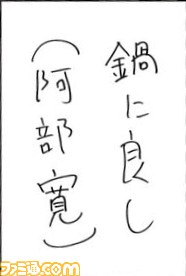 鍋に良し
（阿部寛）
ファミ通.com